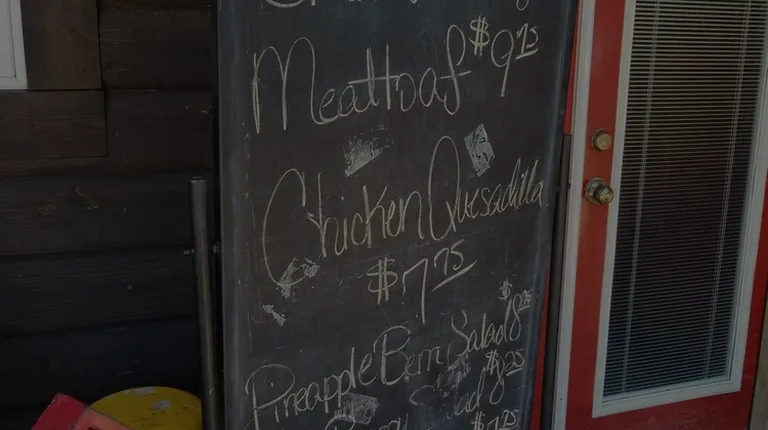 Meatloaf $9.25
Chicken Quesadilla
$7.75
Pineapple Berry Salad $8.25
Salad $8.25